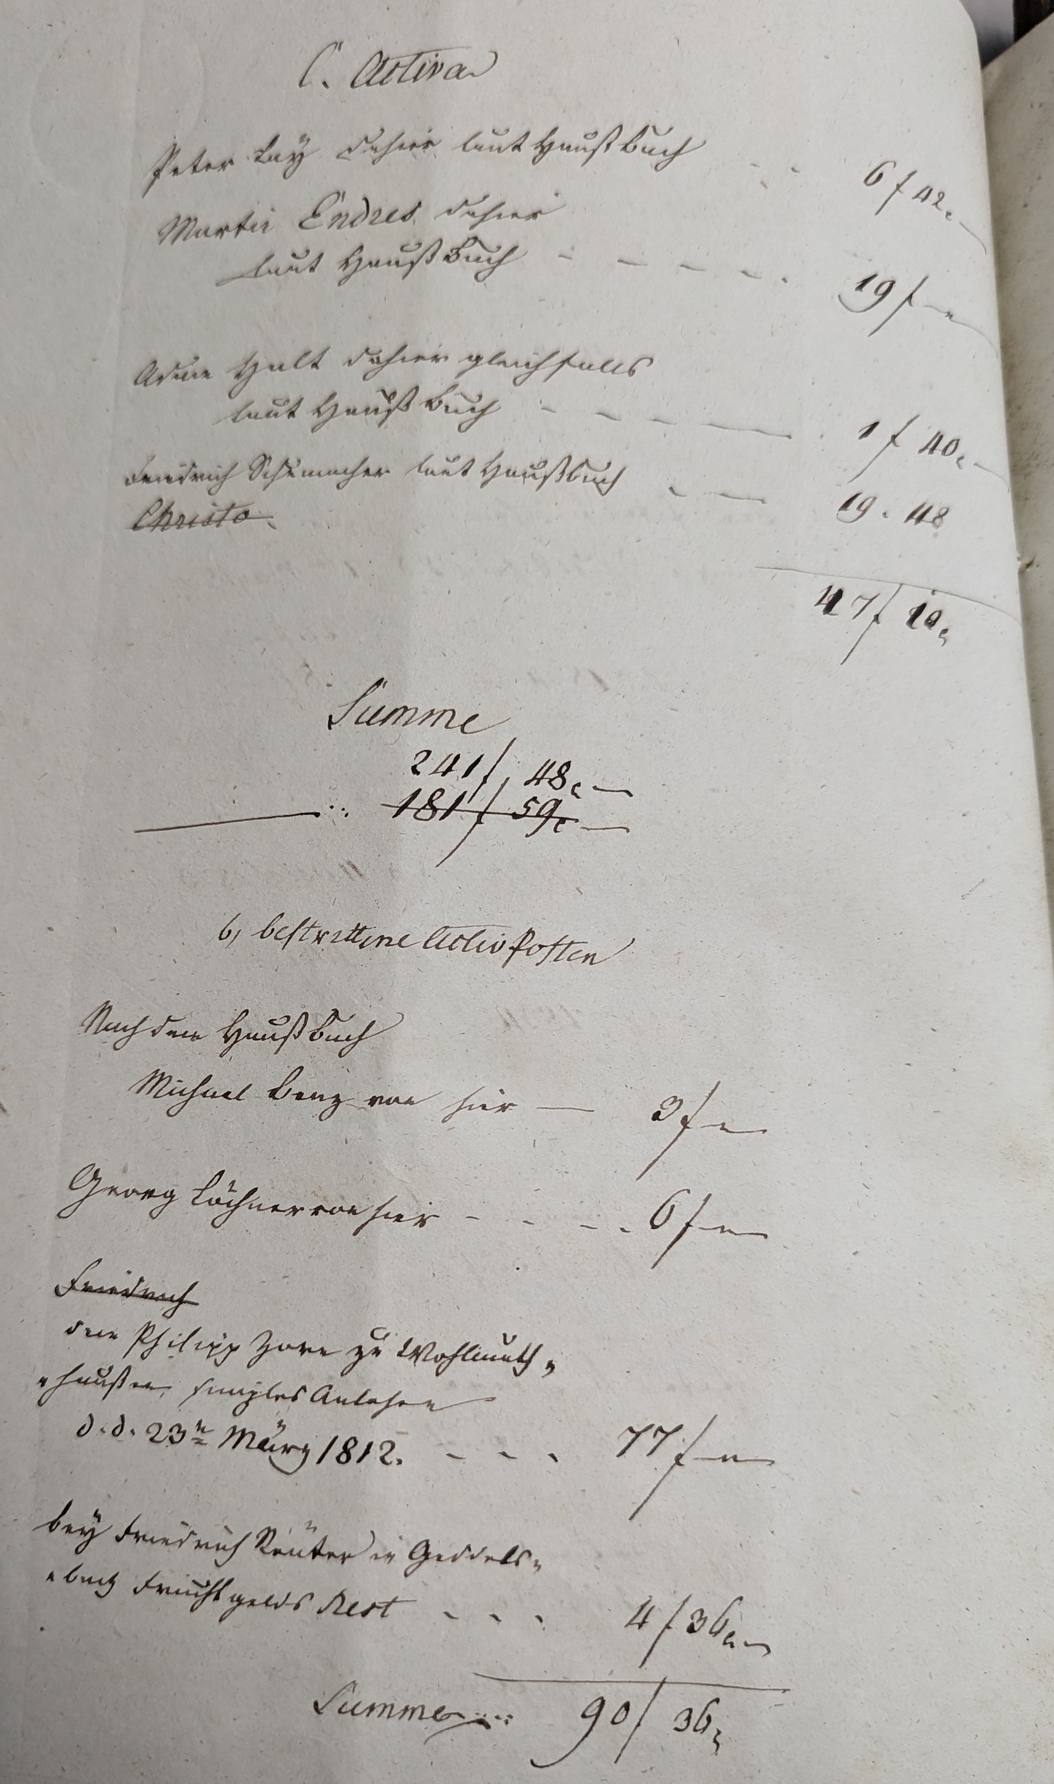 C. Activa
Peter Lay dahier laut Haußbuch - - 6 f 42 x
Martin Endres dahier
laut Haußbuch - - - - - 19 f —
Adam Halt dahier gleichfalls
laut Haußbuch - - - — 1 f 40 x
Friedrich Schumacher laut Haußbuch - - — 19 . 48
Christo
47 f 10 x
Summe
241 f 48 x —
181 f 59 x —
b, bestrittene Activ Posten
Nach dem Haußbuch
Michael Benz von hier — 3 f —
Georg Löchner von hier - - - - 6 f —
Friedrich
dem Philipp Zorn zu Wohlmuth„
„haußen, Anlehen
d. d. 23n März 1812. - - - 77 f —
bey Friedrich Reuter in Geddels„
„bach Fruchtgelds Rest - - - 4 f 36 x —
Summe 90 f 36 x